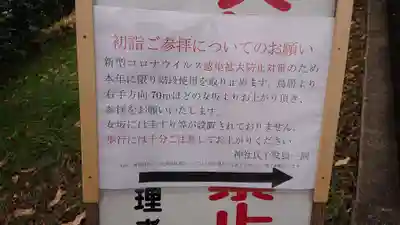 初詣ご参拝についてのお願い
新型コロナウイルス感染拡大防止対策のため
本年に限り階段使用を取り止めます。鳥居より
右手方向70mほどの女坂よりお上がり頂き、
参拝をお願いいたします。
女坂には手すり等が設置されておりません。
歩行には十分ご注意してお上がりください
神社氏子役員一同
理者
禁止